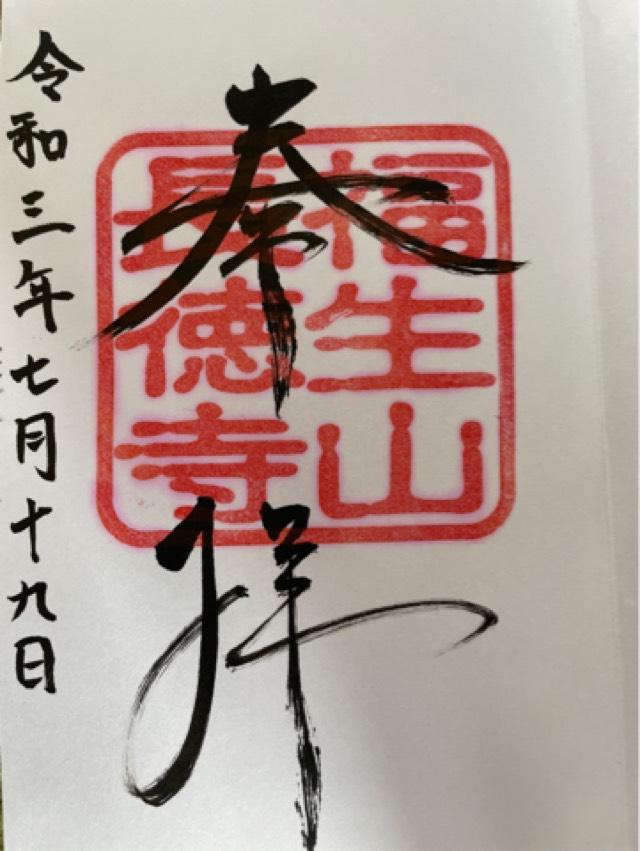 奉拝
福生山
長徳寺
令和三年七月十九日